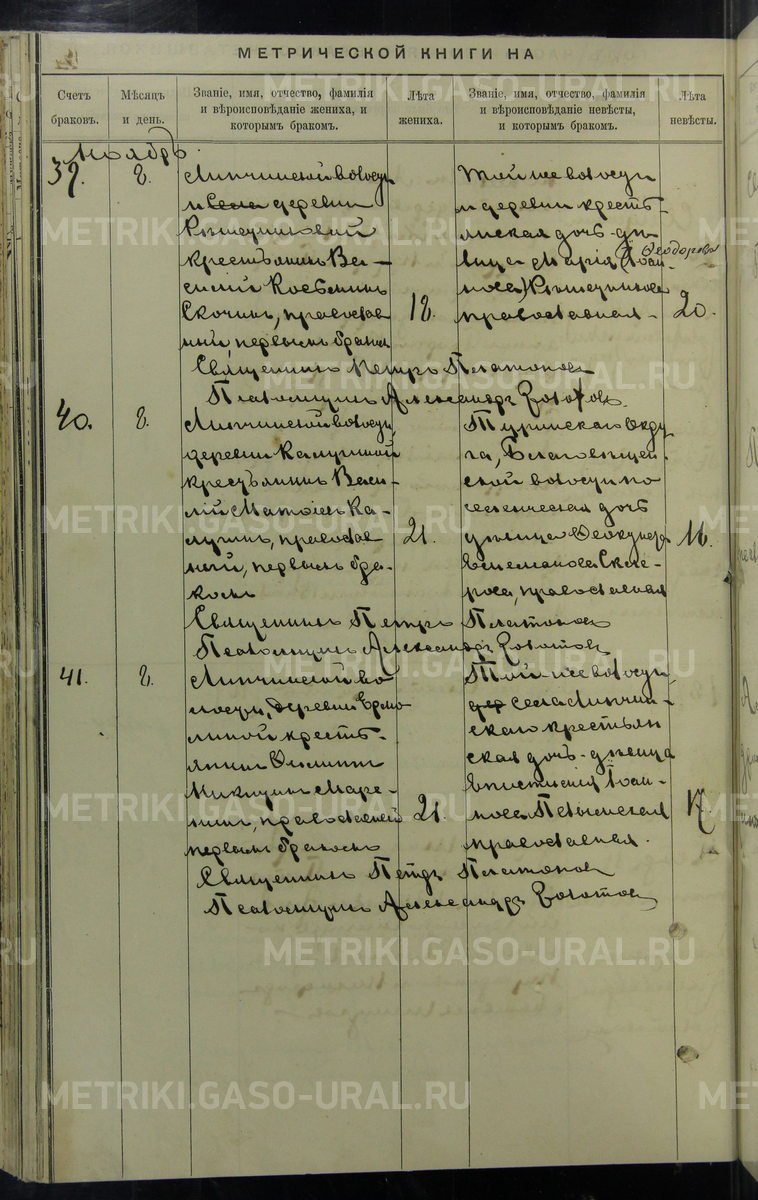 МЕТРИЧЕСКОЙ КНИГИ НА
Счетъ браковъ.
Мѣсяцъ и день.
Званіе, имя, отчество, фамилія и вѣроисповѣданіе жениха, и которымъ бракомъ.
Лѣта жениха.
Званіе, имя, отчество, фамилія и вѣроисповѣданіе невѣсты, и которымъ бракомъ.
Лѣта невѣсты.
Ноябрь.
39.
8.
Липчинской волости
и села деревни
крестьянинъ Ва-
силій Косьминъ
Скочинъ, православ
ный, первымъ бракомъ
18.
Той же волости
и деревни кресть-
янская дочь-дѣ-
вица Марія (Іоан-
Ѳеодорова
нова)
православная
20.
Священникъ Петръ Платоновъ
Псаломщикъ Александръ Золотовъ.
40.
8.
Липчинской волости,
деревни Калугиной
крестьянинъ Васи-
лій Ка-
лугинъ, православ
ный, первымъ бра-
комъ
21.
Туринскаго Окру
га, Благовѣщен-
ской волости по
селенческая дочь
дѣвица
православная
16.
Священникъ Петръ Платоновъ
Псаломщикъ Александръ Золотовъ
41.
8.
Липчинской во
лости, деревни Ермо
линой кресть-
янинъ Филиппъ
Никитинъ
православный
первымъ бракомъ
21.
Той же волости,
дер села Липчин-
скаго крестьян
ская дочь-дѣвица
Іоан-
нова
православная.
17.
Священникъ Петръ Платоновъ
Псаломщикъ Александръ Золотовъ
METRIKI.GASO-URAL.RU